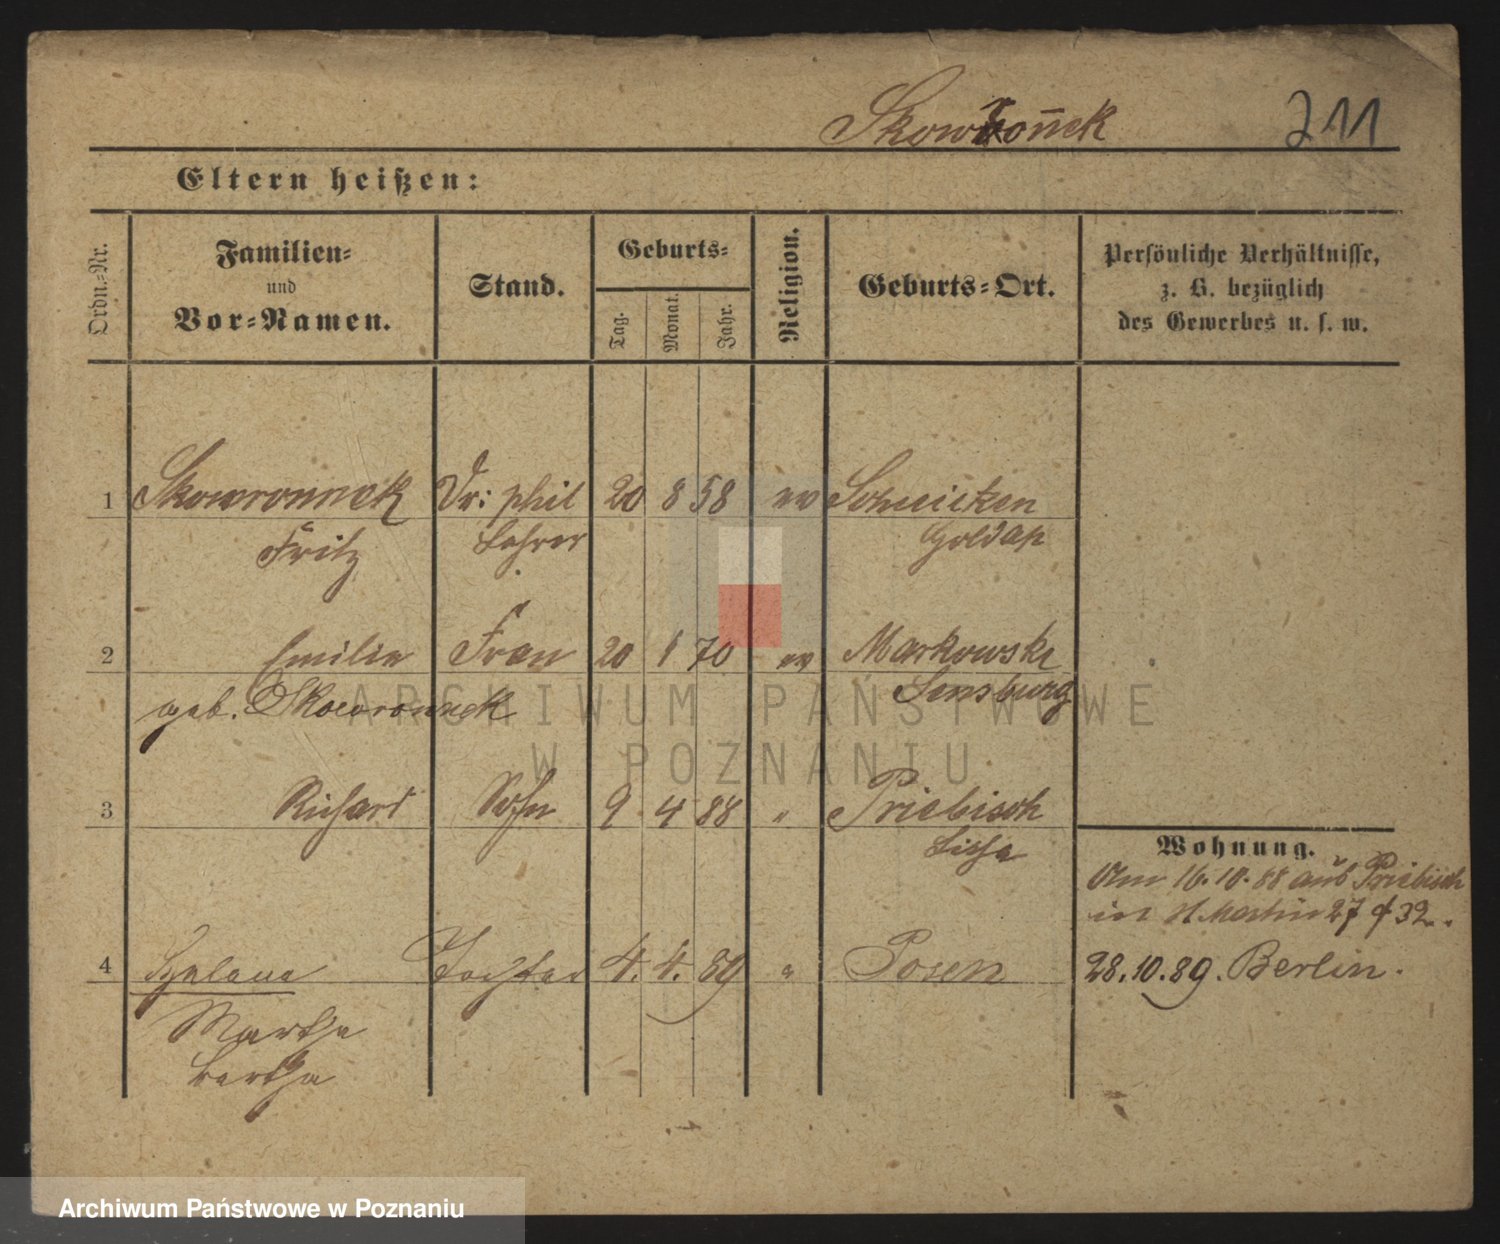 Skowronnek 211
Eltern heißen:
Ordn.-Nr.
Familien-
und
Vor-Namen.
Stand.
Geburts-
Tag.
Monat.
Jahr.
Religion.
Geburts-Ort.
Persönliche Verhältnisse,
z. B. bezüglich
des Gewerbes u. s. w.
1 Skowronnek Dr: phil 20 8 58 ev
Fritz Lehrer Goldap
2 Emilie Frau 20 1 70 ev
geb. Skowronnek Sensburg
3 Richard Sohn 9 4 88 " Priebisch
Lissa
Wohnung.
Am 16.10.88 aus Priebisch
in St. Martin 27 & 32.
4 Helene Tochter 4. 4. 89 " Posen 28.10.89. Berlin.
Martha
Bertha
ARCHIWUM PAŃSTWOWE
W POZNANIU
Archiwum Państwowe w Poznaniu